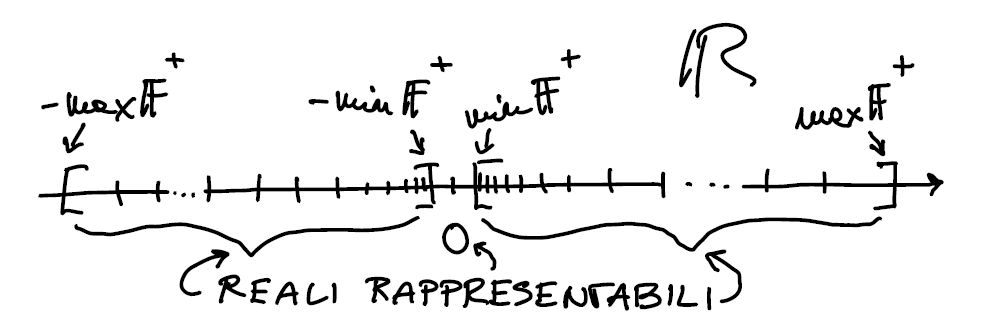 ℝ
-max𝔽⁺ -min𝔽⁺ min𝔽⁺ max𝔽⁺
...
0
REALI RAPPRESENTABILI